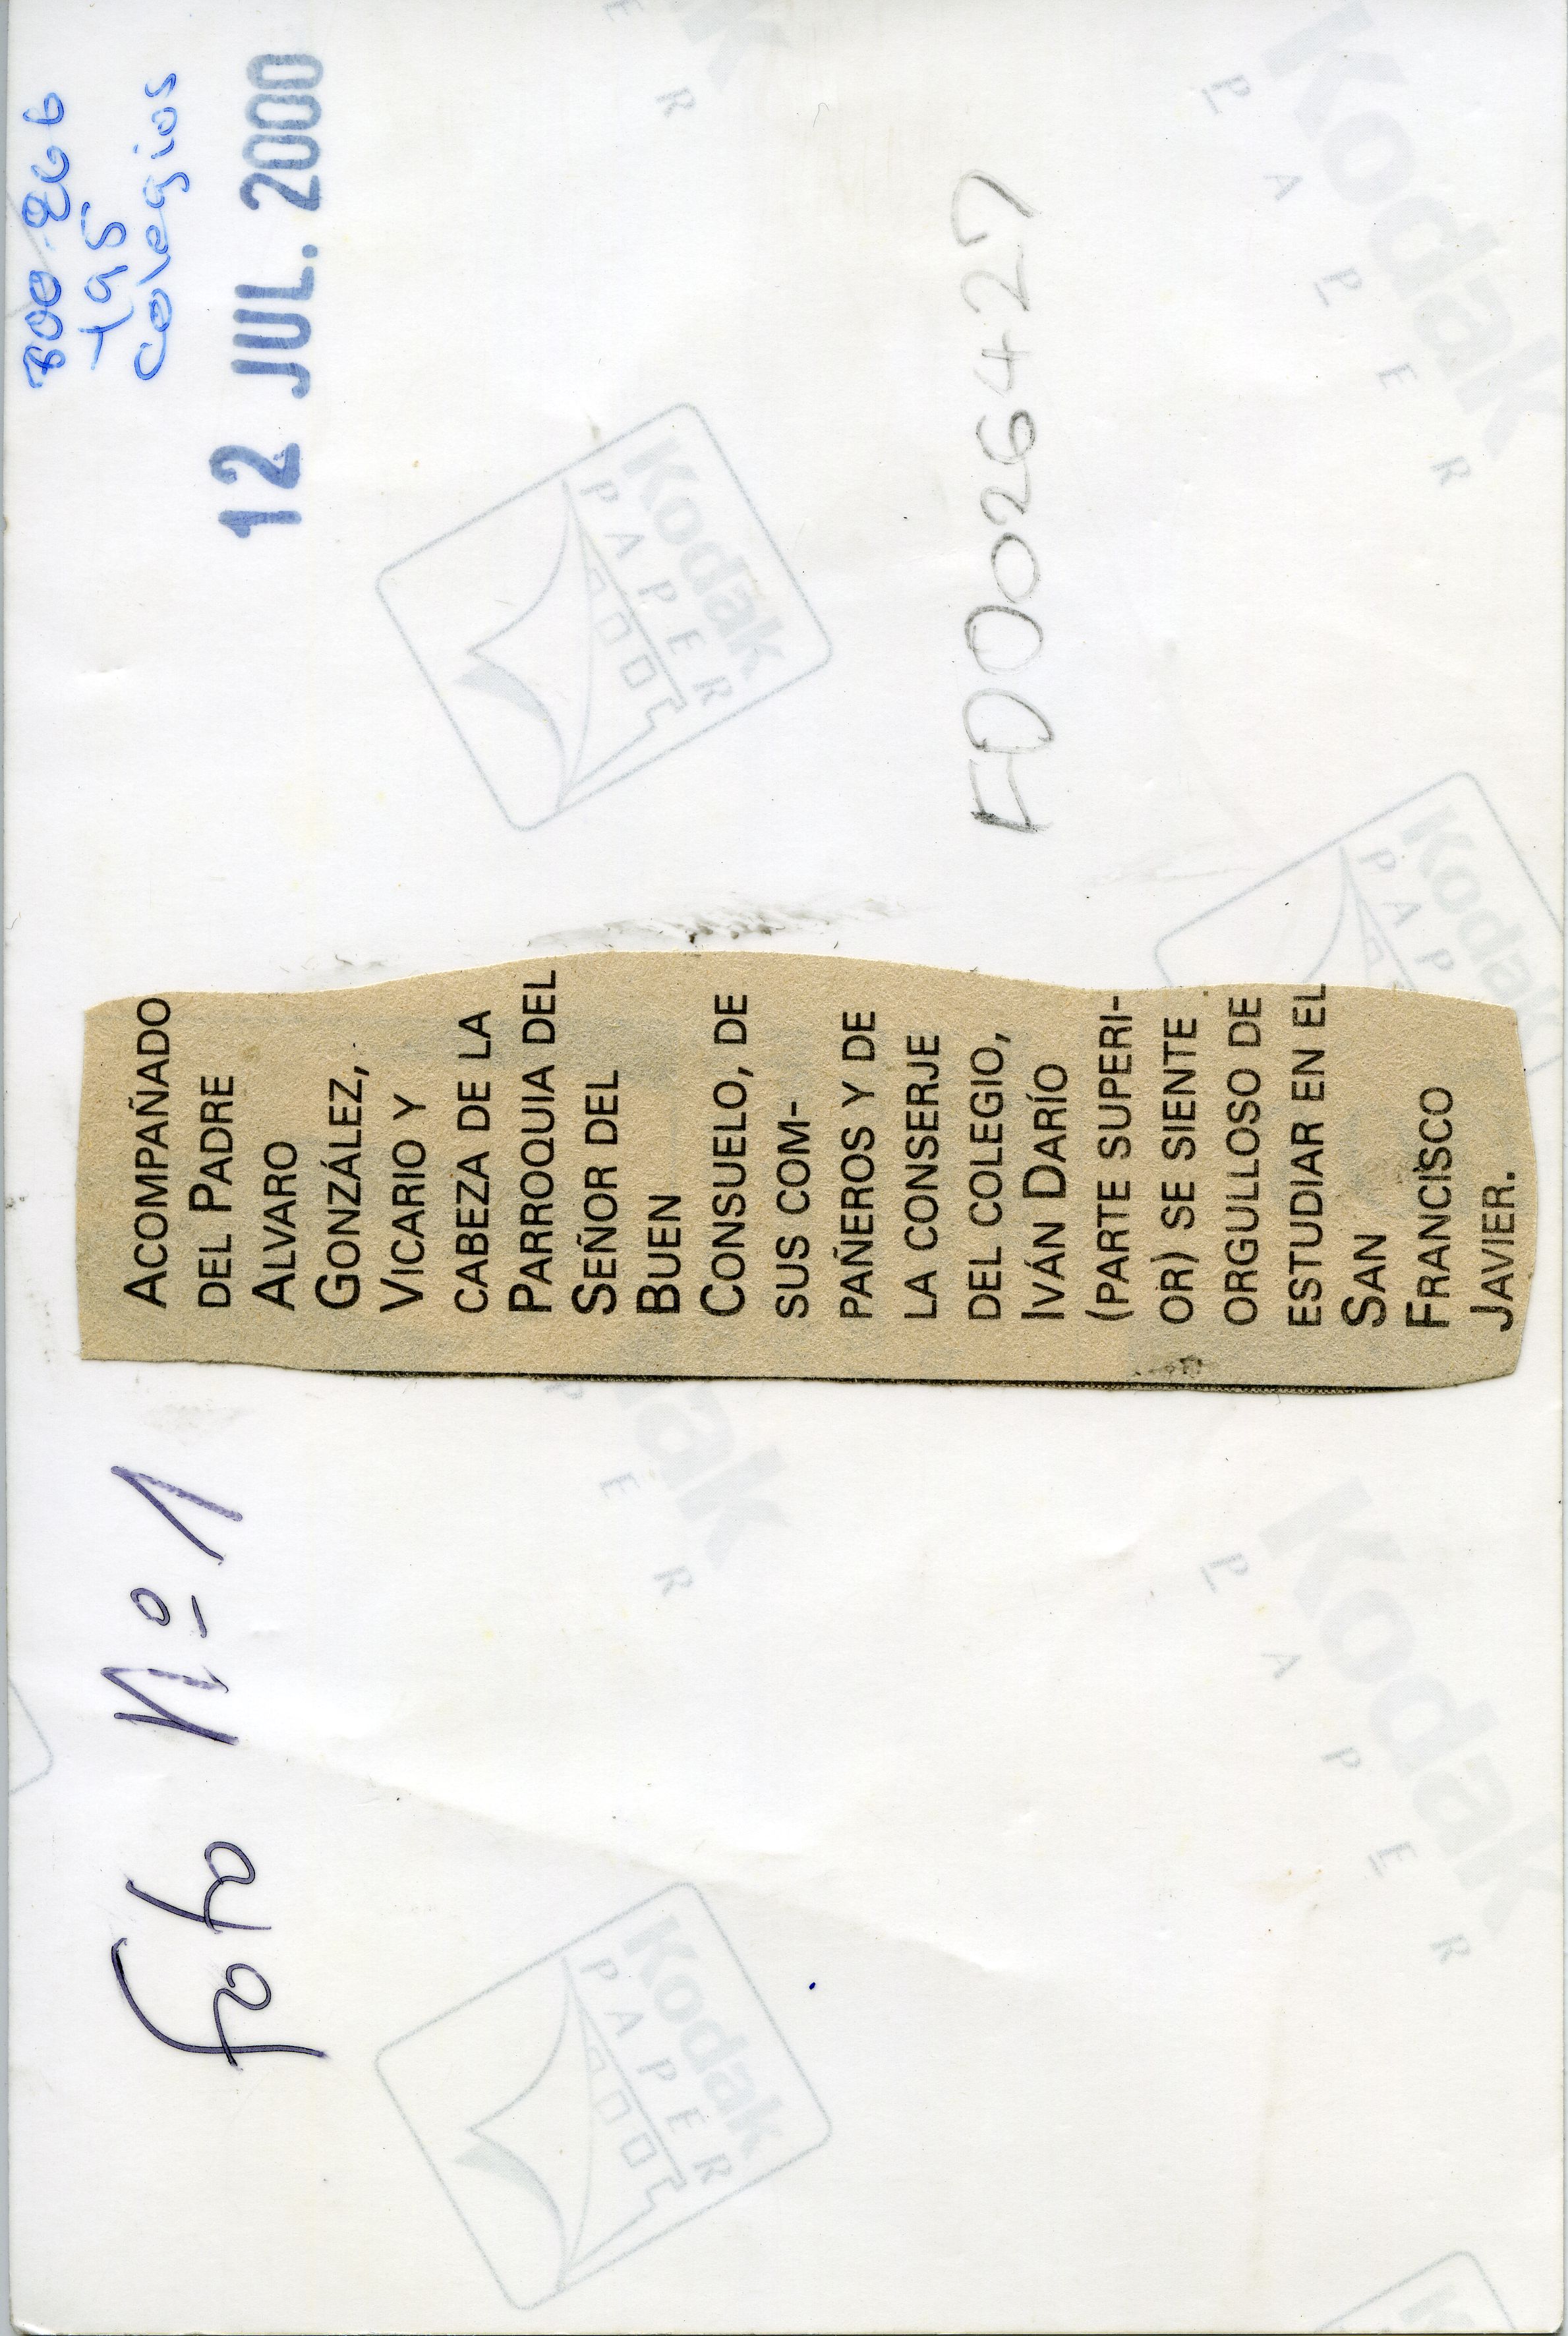 Foto Nº 1
ACOMPAÑADO
DEL PADRE
ALVARO
GONZÁLEZ,
VICARIO Y
CABEZA DE LA
PARROQUIA DEL
SEÑOR DEL
BUEN
CONSUELO, DE
SUS COM-
PAÑEROS Y DE
LA CONSERJE
DEL COLEGIO,
IVÁN DARÍO
(PARTE SUPERI-
OR) SE SIENTE
ORGULLOSO DE
ESTUDIAR EN EL
SAN
FRANCISCO
JAVIER.
195
Colegios
12 JUL. 2000
FD0026427
Kodak
PAPER
Kodak
PAPER
Kodak
PAPER
Kodak
PAPER
Kodak
PAPER